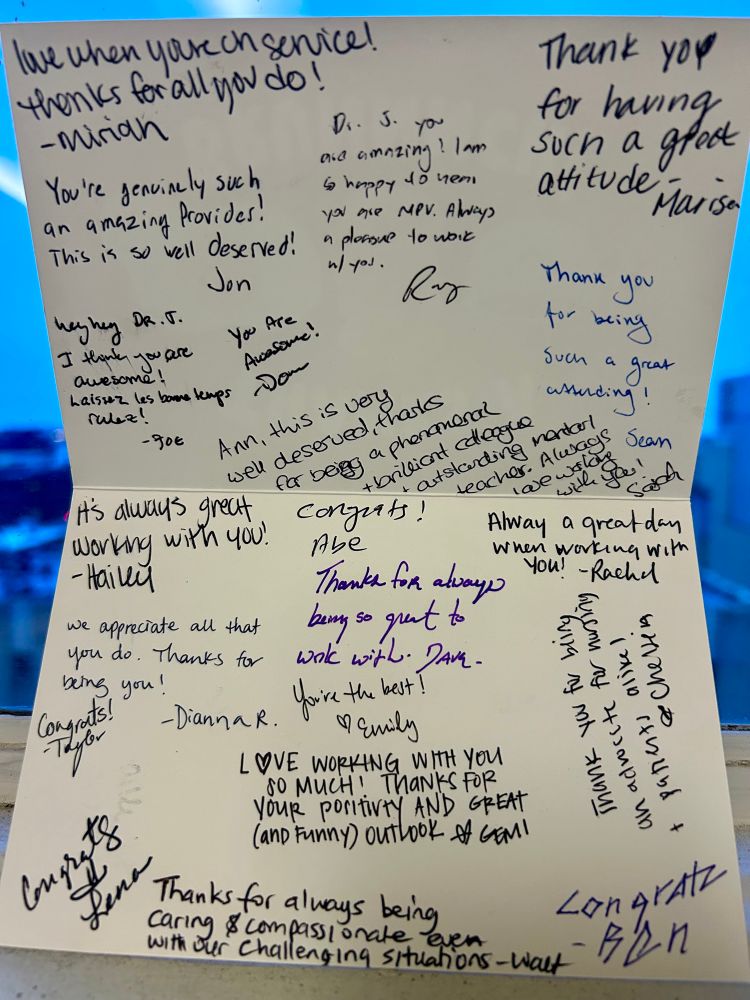 love when you're on service!
thanks for all you do!
-Miriah
Thank you
for having
such a great
attitude -
Marisa
Dr. J. you
are amazing! I am
so happy to hear
you are MPV. Always
a pleasure to work
w/ you.
Ray
You're genuinely such
an amazing Provider!
This is so well deserved!
Jon
Thank you
for being
such a great
attending!
Sean
hey hey Dr. J.
I think you are
awesome!
Laissez les bonne temps
rulez!
-Joe
You Are
Awesome!
-Dom
Ann, this is very
well deserved, thanks
for being a phenomenal
+ brilliant colleague
+ outstanding mentor/
teacher. Always
love working
with you!
Sarah
It's always great
working with you!
-Hailey
Congrats!
Abe
Alway a great day
when working with
YOU! -Rachel
Thanks for always
being so great to
work with. Dave-
we appreciate all that
you do. Thanks for
being you!
-Dianna R.
Congrats!
-Taylor
You're the best!
♡ Emily
Thank you for being
an advocate for nursing
+ patients alike!
Chelsia
L♡VE WORKING WITH YOU
SO MUCH! THANKS FOR
YOUR POSITIVITY AND GREAT
(and FUNNY) OUTLOOK GEMI
Congrats
Lena
Thanks for always being
caring & compassionate even
with our challenging situations -Walt
Congratz
- BEn